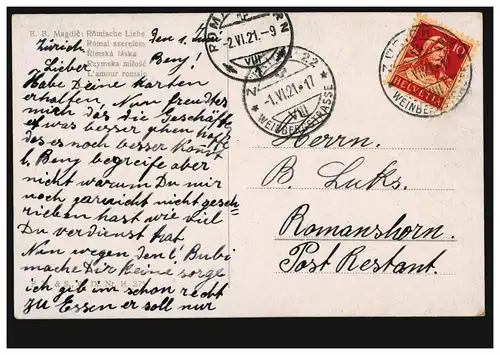 E. B. Magdič: Römische Liebe
Római szerelem
Římská láska
Rzymska miłość
L'amour romain
Zürich den 1. Juni
Lieber Beny!
Habe Deine Karten
erhalten, Nun freudt es
mich das die Geschäfte
etwas besser gehn
das es noch besser kommt
l. Beny begreife aber
nicht warum Du mir
noch garnicht nicht gesch=
rieben hast wie viel
Du verdienst hat.
Nun wegen den l. Bubi
mache Dir keine sorge
ich gib im schon recht
zu Essen er soll nur
-2.VI.21.-9
VIII
22
-1.VI.21.-17
VIII
WEINBERGSTRASSE
10
HELVETIA
WEINBERG
Herrn.
B. Luks.
Romanshorn.
Post Restant.